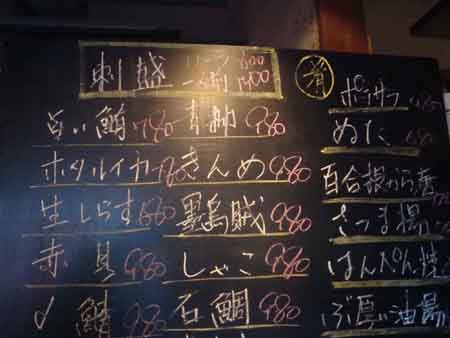 刺盛
一人前 1400
肴
占い鯖 780
ホタルイカ 780
生しらす 680
赤貝 980
〆鯖 980
青柳 980
きんめ 980
墨烏賊 980
しゃこ 980
石鯛 980
ポテサラ 480
ぬた
百合根から揚
さつま揚
はんぺん焼
ぶ厚い油揚